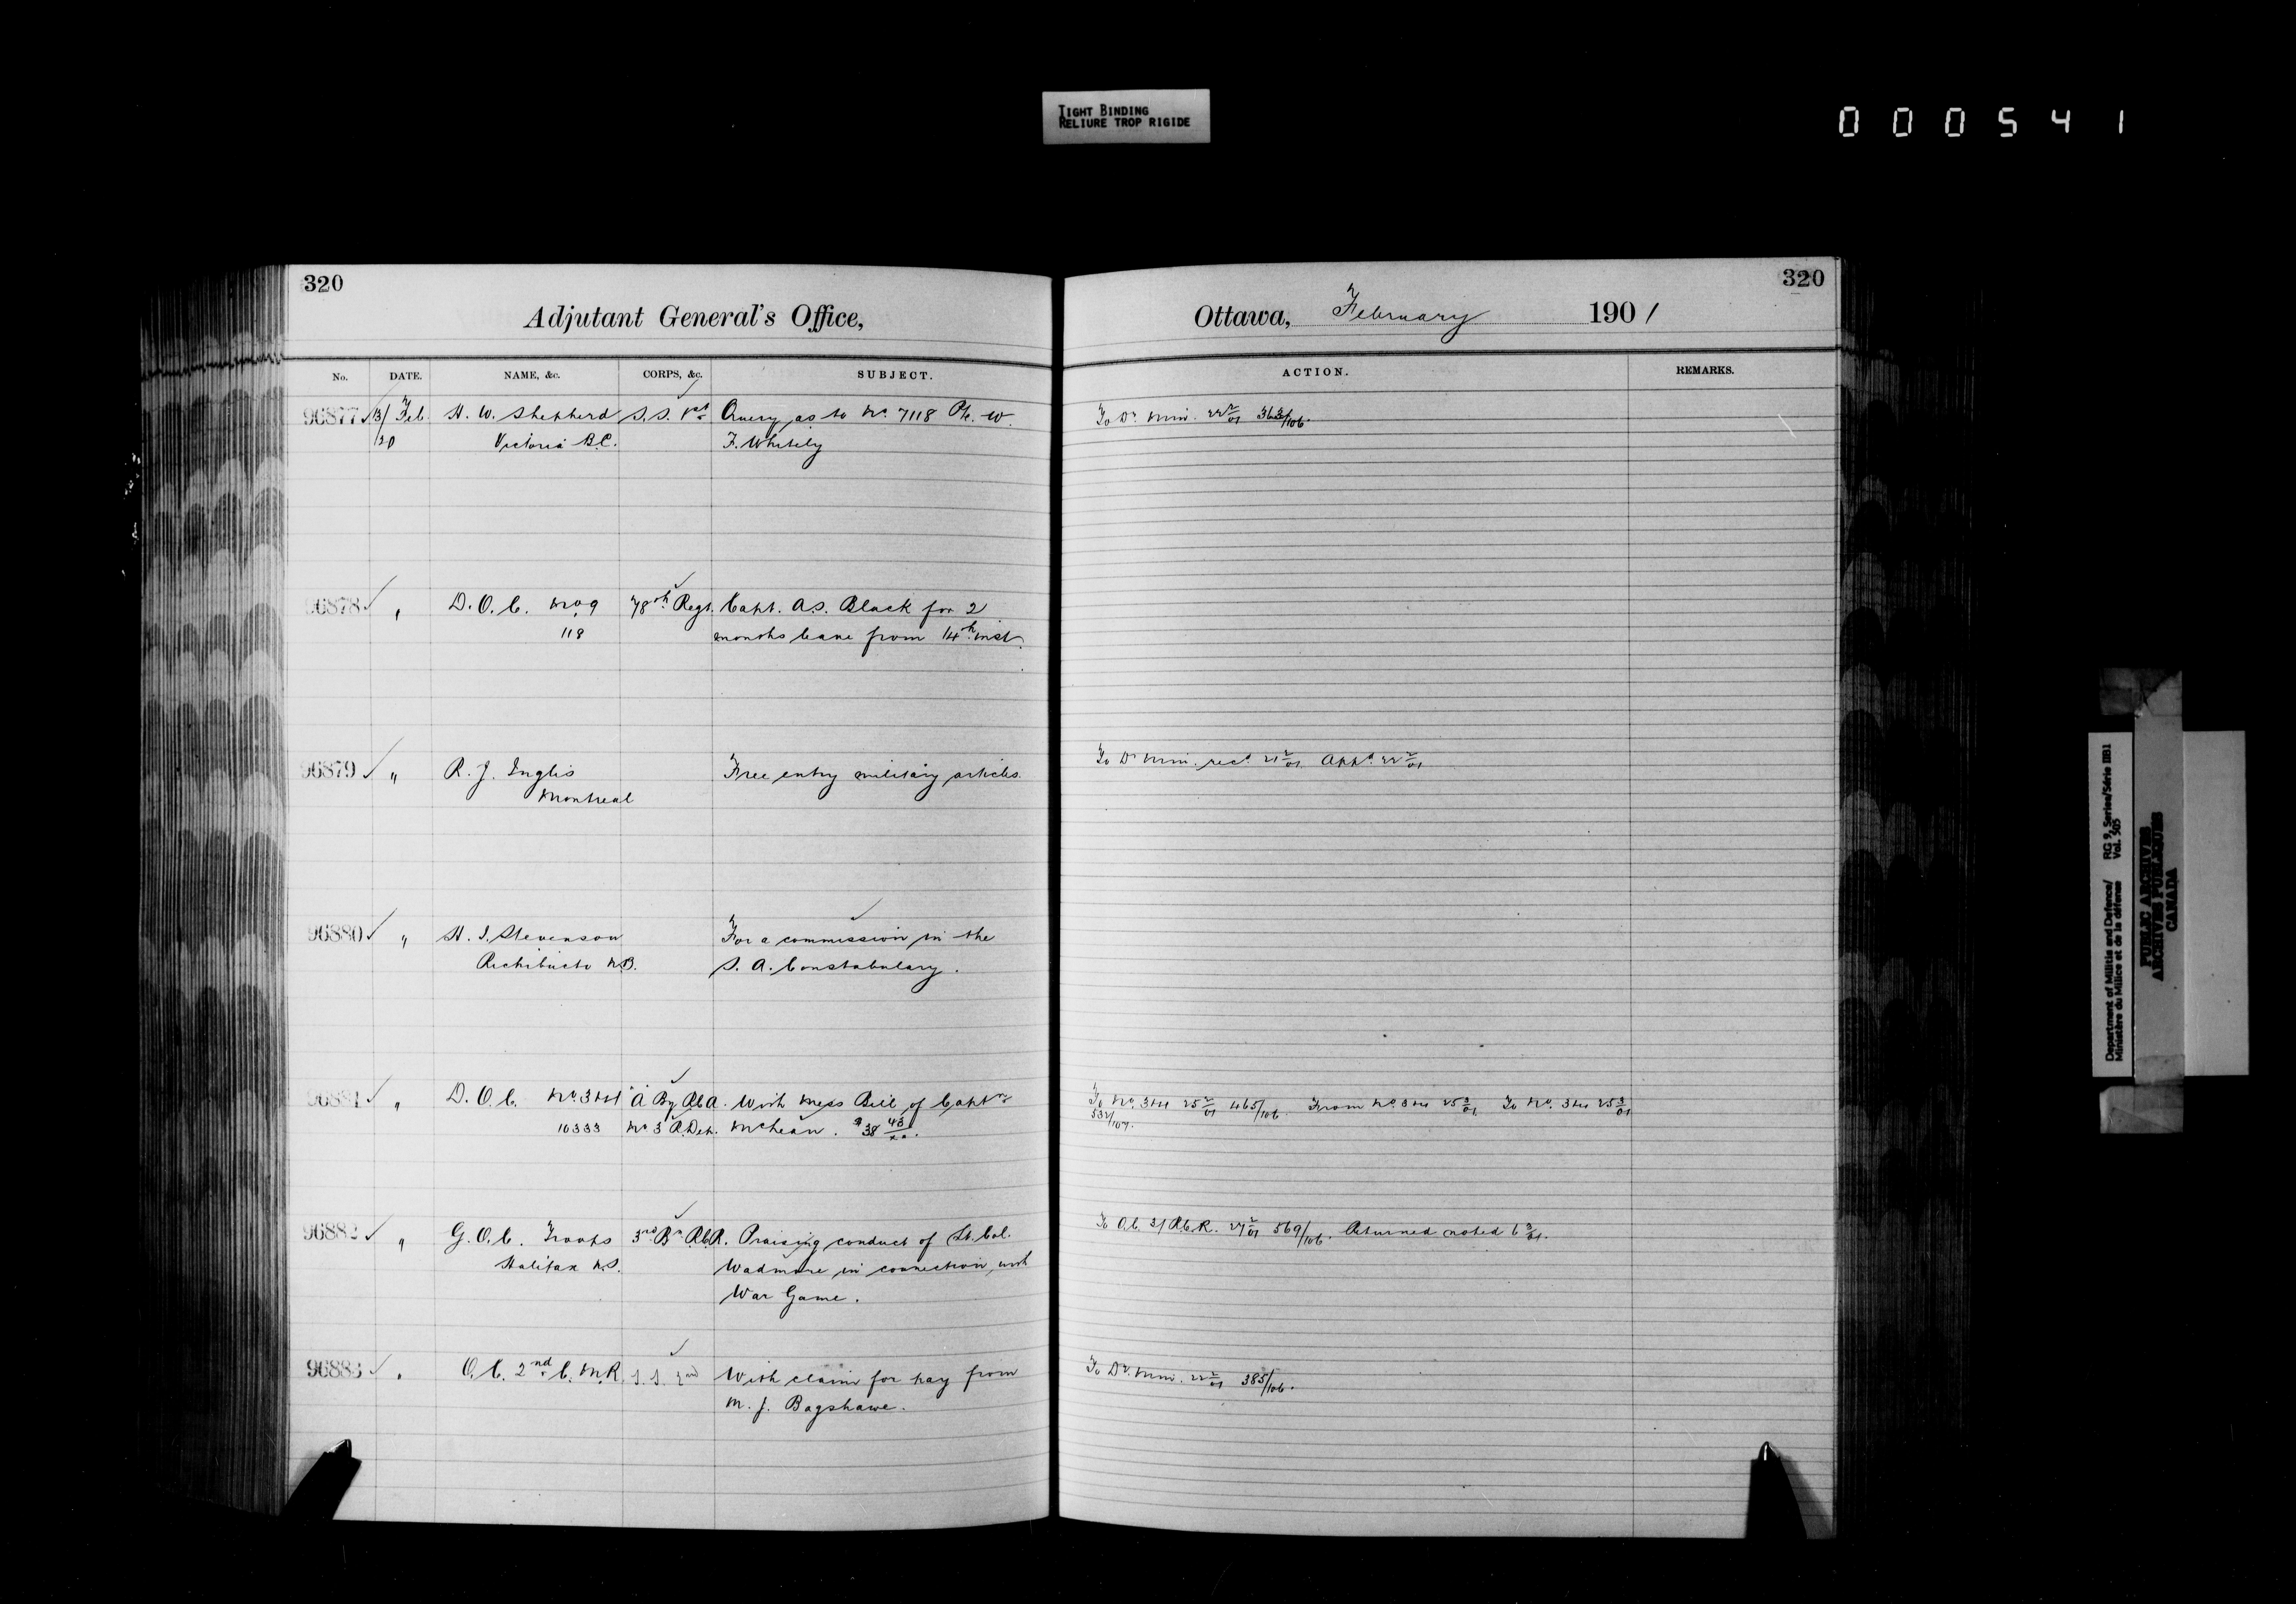 TIGHT BINDING
RELIURE TROP RIGIDE
000541
320
320
Adjutant General's Office,
Ottawa, February 1901
No. DATE. NAME, &c. CORPS, &c. SUBJECT. ACTION. REMARKS.
96877 13/ Feb. H. W. Shepherd S.S. 1st Query as to No. 7118 Pte. W. To Dr. Min. 22 2/01 363/106.
20 Victoria B.C. F. Whitely
96878 " D.O.C. No 9 78th Regt. Capt. A.S. Black for 2
118 months leave from 14th inst.
96879 " R. J. Inglis Free entry military articles. To Dr Min. recd. 21 2/01 Appd. 22 2/01
Montreal
96880 " H. I. Stevenson For a commission in the
Richibucto N.B. S. A. Constabulary.
96881 " D.O.C. No 3 & 4 "A" By R.C.A. With Mess Bill of Captn To No. 3 & 4 25 2/01 465/106. From No. 3 & 4 25 3/01 To No. 3 & 4 25 3/01
10333 No 3 R. Det. McLean. $38 43/xx. 532/107.
96882 " G.O.C. Troops 3rd Bn R.C.R. Praising conduct of Lt. Col. To O.C. 3/ R.C.R. 27 2/01 569/106. Returned noted 6 3/01.
Halifax N.S. Wadmore in connection with
War Game.
96883 " O.C. 2nd C.M.R. S.S. 2nd With claim for pay from To Dr. Min. 22 2/01 385/106.
M. J. Bagshawe.
Department of Militia and Defence/ RG 9, Series/Série IIB1
Ministère du Milice et de la défense Vol. 505
PUBLIC ARCHIVES
ARCHIVES PUBLIQUES
CANADA